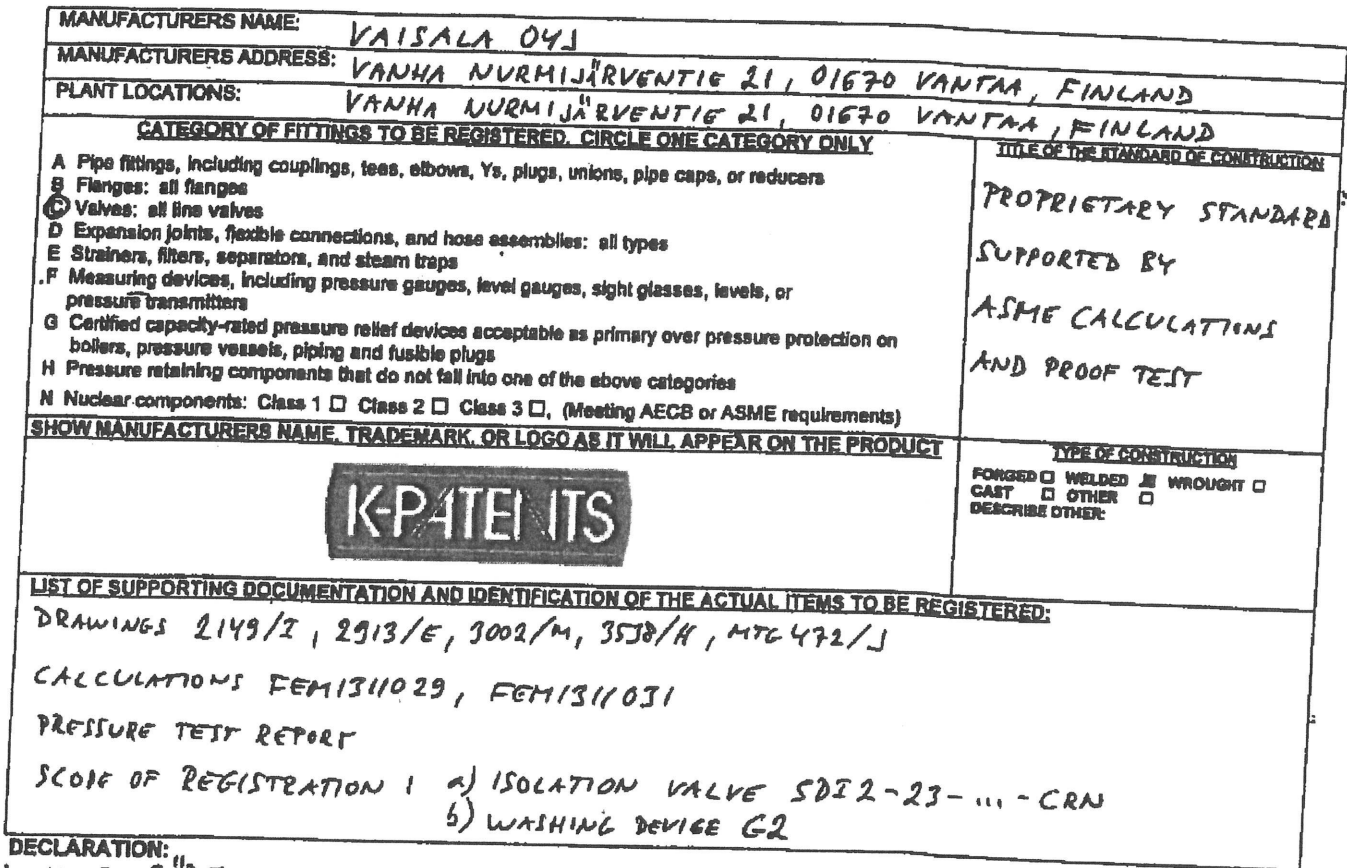 MANUFACTURERS NAME: VAISALA OYJ
MANUFACTURERS ADDRESS: VANHA NURMIJÄRVENTIE 21, 01670 VANTAA, FINLAND
PLANT LOCATIONS: VANHA NURMIJÄRVENTIE 21, 01670 VANTAA, FINLAND
CATEGORY OF FITTINGS TO BE REGISTERED. CIRCLE ONE CATEGORY ONLY
A Pipe fittings, including couplings, tees, elbows, Ys, plugs, unions, pipe caps, or reducers
B Flanges: all flanges
C Valves: all line valves
D Expansion joints, flexible connections, and hose assemblies: all types
E Strainers, filters, separators, and steam traps
F Measuring devices, including pressure gauges, level gauges, sight glasses, levels, or
pressure transmitters
G Certified capacity-rated pressure relief devices acceptable as primary over pressure protection on
boilers, pressure vessels, piping and fusible plugs
H Pressure retaining components that do not fall into one of the above categories
N Nuclear components: Class 1 ☐ Class 2 ☐ Class 3 ☐, (Meeting AECB or ASME requirements)
TITLE OF THE STANDARD OF CONSTRUCTION
PROPRIETARY STANDARD
SUPPORTED BY
ASME CALCULATIONS
AND PROOF TEST
SHOW MANUFACTURERS NAME, TRADEMARK, OR LOGO AS IT WILL APPEAR ON THE PRODUCT
K-PATENTS
TYPE OF CONSTRUCTION
FORGED ☐ WELDED ☒ WROUGHT ☐
CAST ☐ OTHER ☐
DESCRIBE OTHER:
LIST OF SUPPORTING DOCUMENTATION AND IDENTIFICATION OF THE ACTUAL ITEMS TO BE REGISTERED:
DRAWINGS 2149/I, 2913/E, 3002/M, 3538/H, MTG 472/J
CALCULATIONS FEM1311029, FEM1311031
PRESSURE TEST REPORT
SCOPE OF REGISTRATION : a) ISOLATION VALVE SDI2-23-...-CRN
b) WASHING DEVICE G2
DECLARATION: